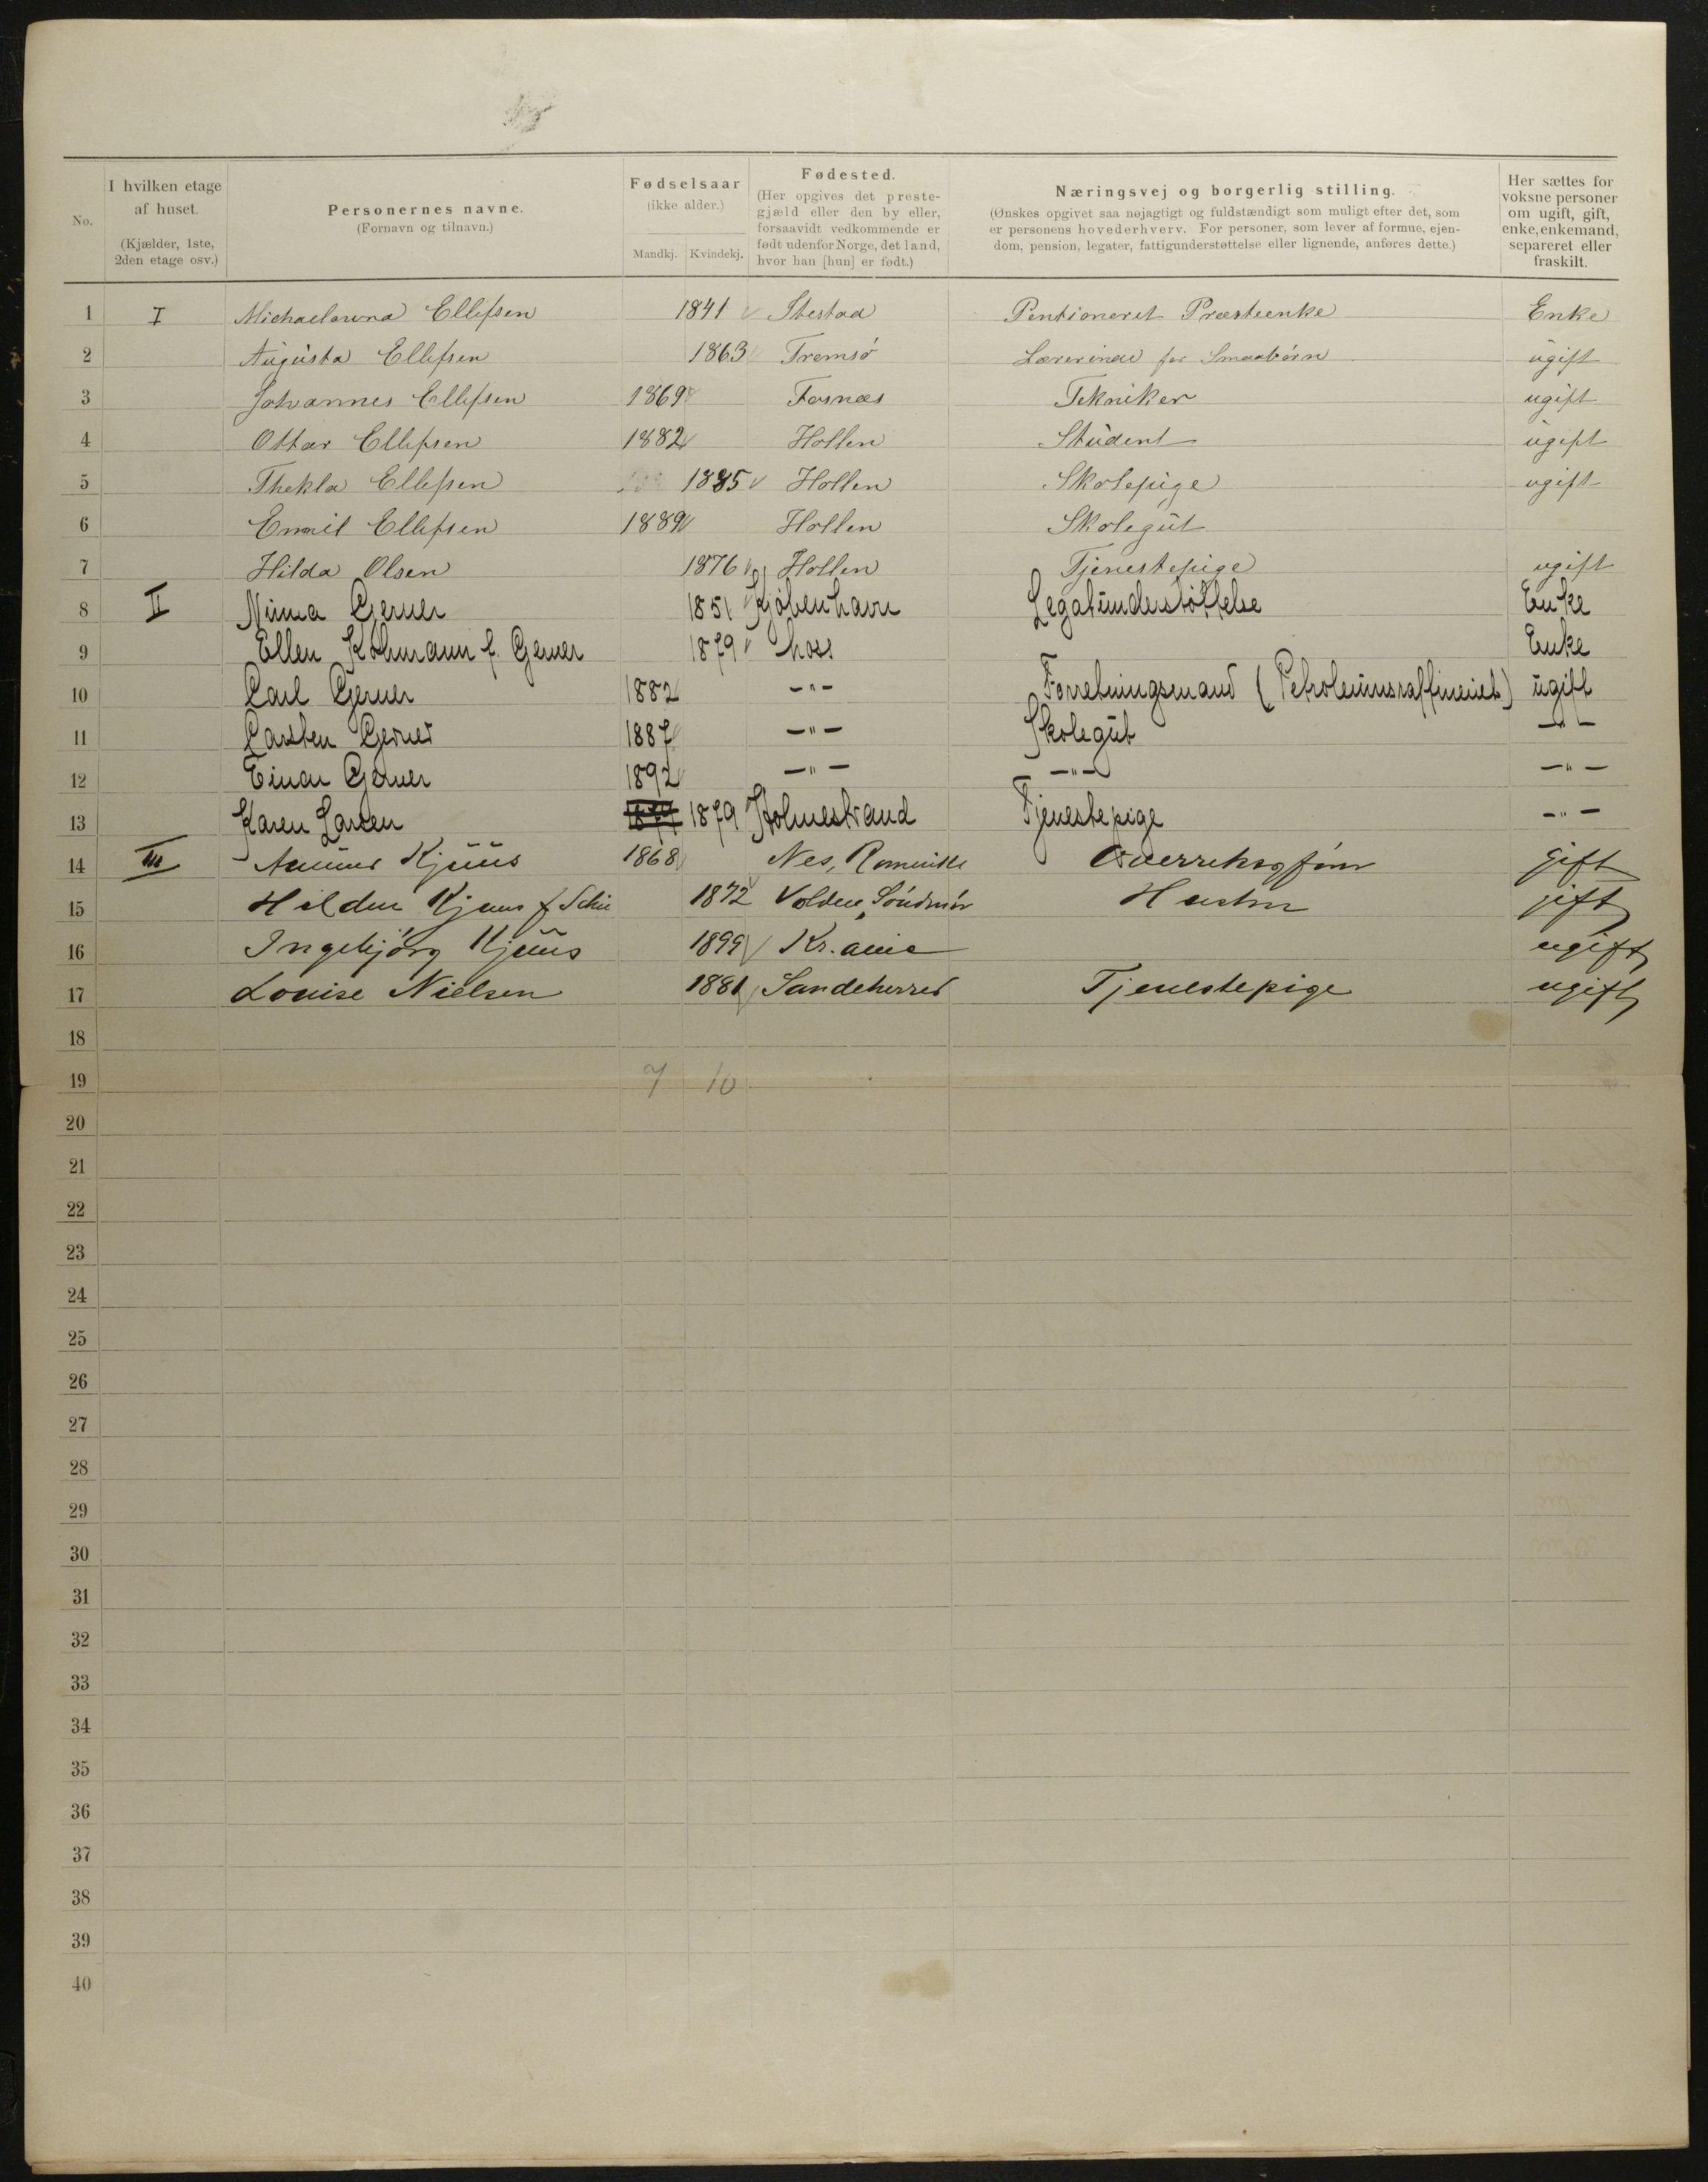 No.
I hvilken etage
af huset.
(Kjælder, 1ste,
2den etage osv.)
Personernes navne.
(Fornavn og tilnavn.)
Fødselsaar
(ikke alder.)
Mandkj. Kvindekj.
Fødested.
(Her opgives det preste-
gjæld eller den by eller,
forsaavidt vedkommende er
født udenfor Norge, det land,
hvor han [hun] er født.)
Næringsvej og borgerlig stilling.
(Ønskes opgivet saa nøjagtigt og fuldstændigt som muligt efter det, som
er personens hovederhverv. For personer, som lever af formue, ejen-
dom, pension, legater, fattigunderstøttelse eller lignende, anføres dette.)
Her sættes for
voksne personer
om ugift, gift,
enke, enkemand,
separeret eller
fraskilt.
1 I Ellefsen 1841 Pentioneret Præsteenke Enke
2 Augusta Ellefsen 1863 Tromsø Lærerinde for Smaabørn ugift
3 Johannes Ellefsen 1869 Fosnæs Tekniker ugift
4 Ottar Ellefsen 1882 Hollen Student ugift
5 Thekla Ellefsen 1885 Hollen Skolepige ugift
6 Emil Ellefsen 1889 Hollen Skolegut
7 Hilda Olsen 1876 Hollen Tjenestepige ugift
8 II Gerner 1851 Kjøbenhavn Legatunderstøttelse Enke
9 Ellen f. Gerner 1879 Moss Enke
10 Carl Gerner 1882 -"- Forretningsmand (Petroleumsraffineriet) ugift
11 Carsten Gerner 1887 -"- Skolegut -"-
12 Einar Gerner 1892 -"- -"- -"-
13 Karen Larsen 1879 Holmestrand Tjenestepige -"-
14 III Kjuus 1868 Nes, Romerike gift
15 Kjuus f. 1872 Volden, Søndmør Hustru gift
16 Ingebjørg Kjuus 1899 Kr.ania ugift
17 Louise Nielsen 1881 Sandeherred Tjenestepige ugift
18
19 7 10
20
21
22
23
24
25
26
27
28
29
30
31
32
33
34
35
36
37
38
39
40